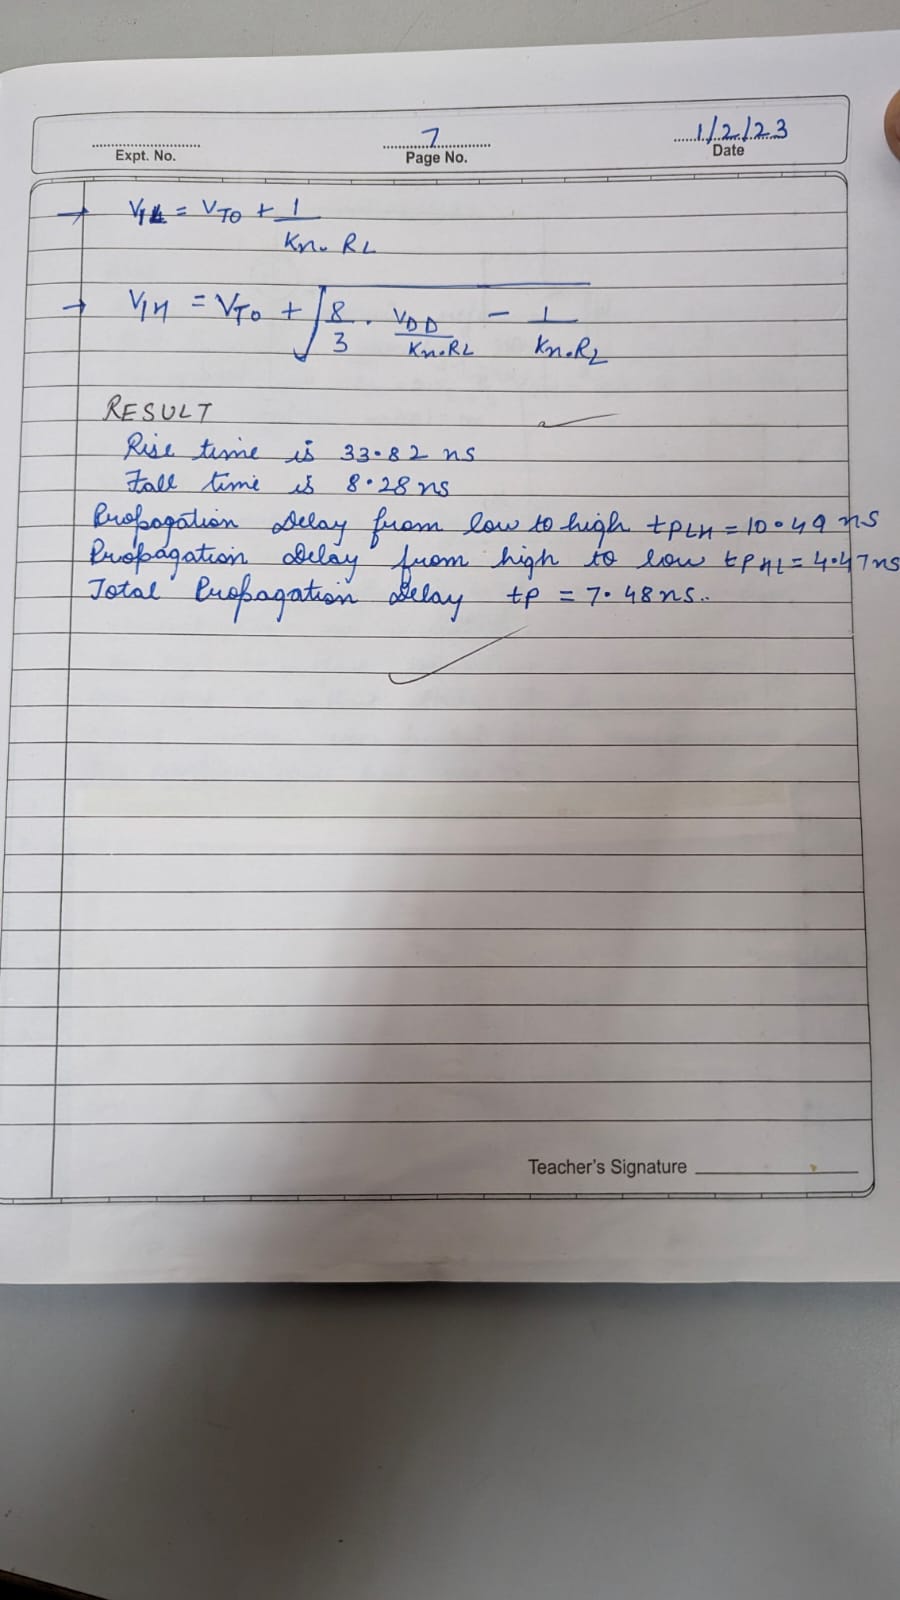 7
1/2/23
Expt. No.
Page No.
Date
→ VIL = VTO + 1/Kn. RL
→ VIH = VTO + √(8/3 . VDD/Kn.RL − 1/Kn.RL)
RESULT
Rise time is 33.82 ns
Fall time is 8.28 ns
Propogation Delay from low to high tPLH = 10.49 ns
Propagation Delay from high to low tPHL = 4.47 ns
Total Propagation Delay tP = 7.48 ns..
Teacher's Signature